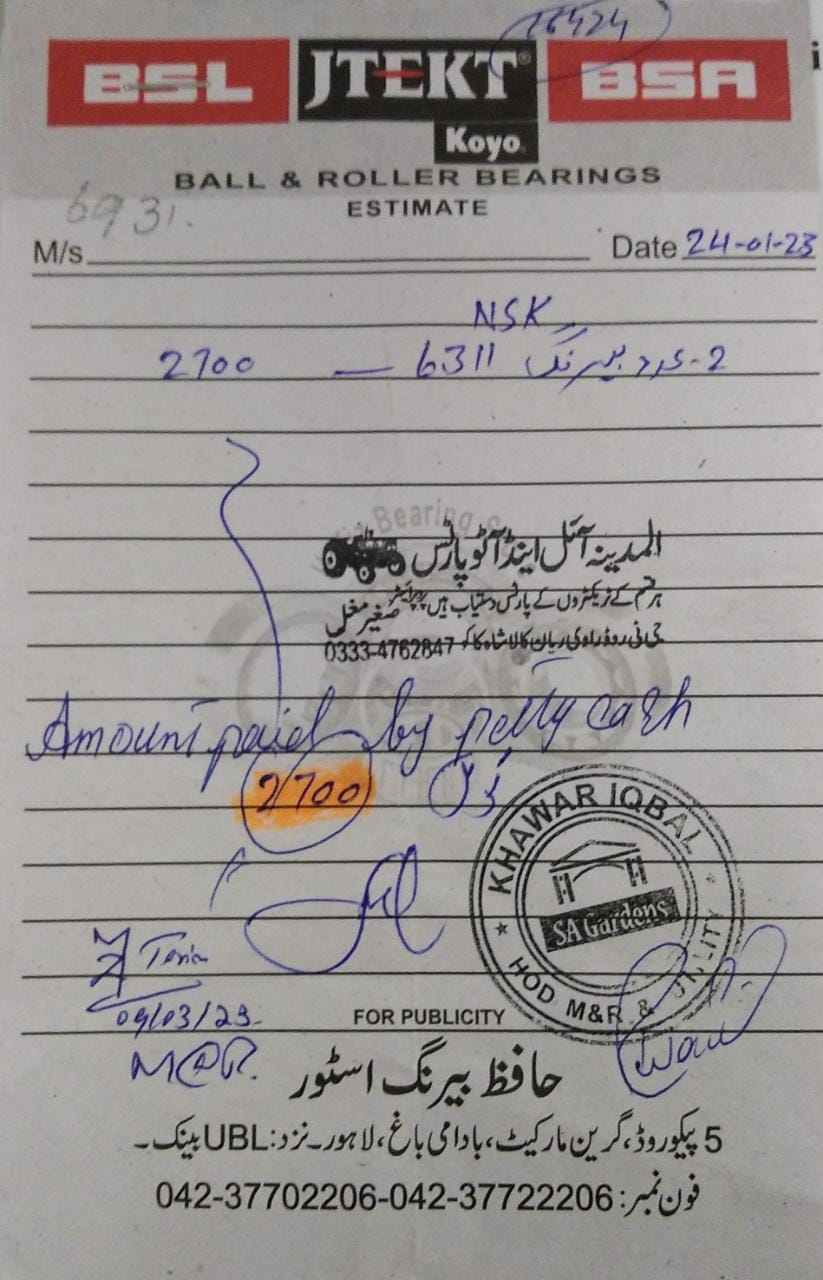 16424
BSL JTEKT® BSA
Koyo
BALL & ROLLER BEARINGS
ESTIMATE
6931.
M/s Date 24-01-23
NSK
2-عدد بیرنگ 6311 — 2700
Bearing
المدینہ آئل اینڈ آٹو پارٹس
ہر قسم کے ٹریکٹروں کے پارٹس دستیاب ہیں پروپرائیٹر صغیر مغل
جی ٹی روڈ راوی ریان کالا شاہ کاکو 0333-4762847
Amount paid by petty cash
2700
KHAWAR IQBAL
SA Gardens
HOD M&R & UTILITY
09/03/23
M&R.
FOR PUBLICITY
حافظ بیرنگ اسٹور
5 پیکو روڈ، گرین مارکیٹ، بادامی باغ، لاہور۔ نزد: UBL بینک۔
فون نمبر: 042-37722206-042-37702206